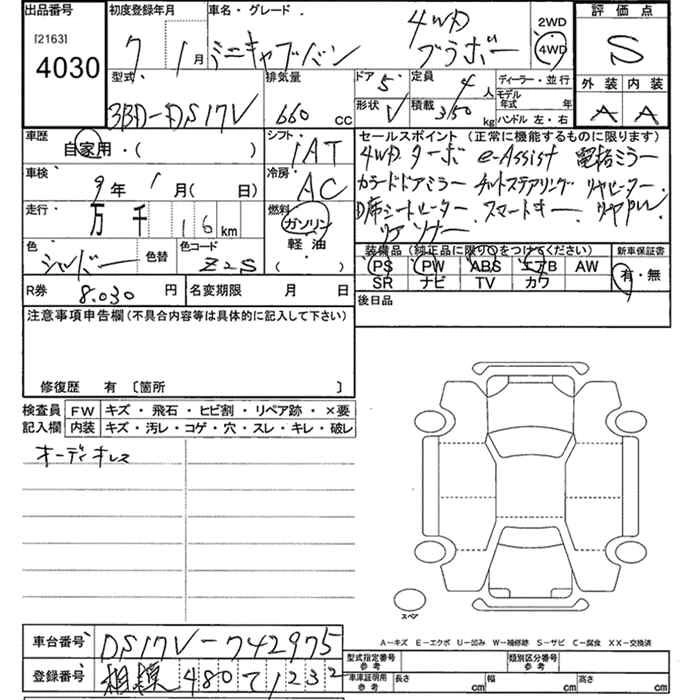 出品番号
[2163]
4030
初度登録年月
7年1月
車名・グレード
ミニキャブバン
4WD
ブラボー
2WD
4WD
評価点
S
外装 内装
A A
型式
3BD-DS17V
排気量
660 cc
ドア 5
定員 4人
形状 V
積載 350 kg
ディーラー・並行
モデル年式 年
ハンドル 左・右
車歴
自家用・( )
シフト
IAT
車検
9年1月( 日)
冷房
AC
走行
万千 16 km
燃料
ガソリン
軽油
( )
色
シルバー
色替
色コード
Z2S
セールスポイント(正常に機能するものに限ります)
4WD ターボ e-Assist 電格ミラー
カラードドアミラー チルトステアリング リヤヒーター
D席シートヒーター スマートキー リヤ
リヤソナー
装備品(純正品に限り○をつけてください)
PS PW ABS エアB AW
SR ナビ TV カワ
新車保証書
有・無
R券 8.030 円
名変期限 月 日
後日品
注意事項申告欄(不具合内容等は具体的に記入して下さい)
修復歴 有 [箇所 ]
検査員記入欄
FW キズ・飛石・ヒビ割・リペア跡・×要
内装 キズ・汚レ・コゲ・穴・スレ・キレ・破レ
オーディオレス
スペア
A-キズ E-エクボ U-凹み W-補修跡 S-サビ C-腐食 XX-交換済
車台番号 DS17V-742975
登録番号 相模480て1232
型式指定番号 参考
類別区分番号 参考
車庫証明用 参考
長さ cm 幅 cm 高さ cm